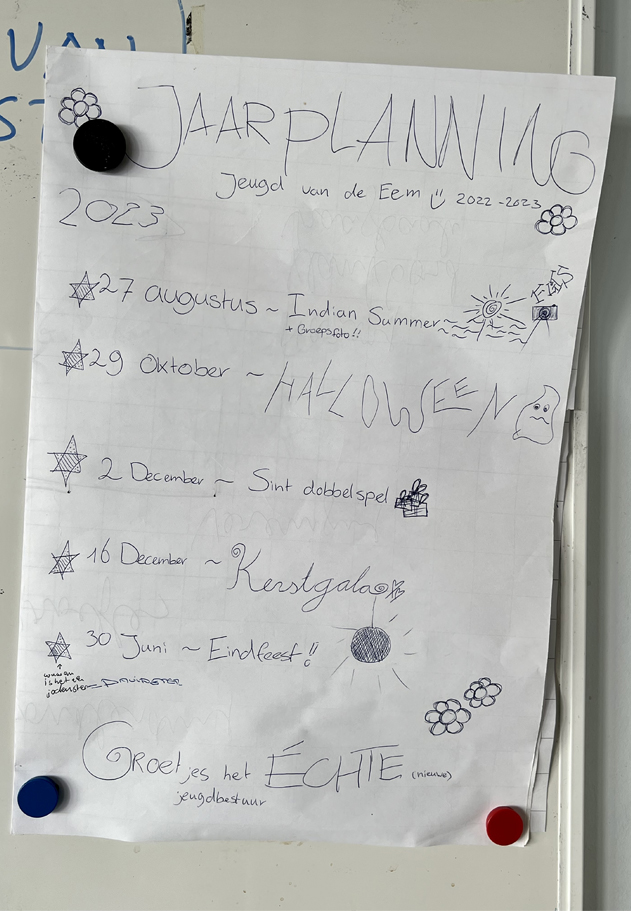 VAN
ST
JAARPLANNING
Jeugd van de Eem 2022-2023
2023
27 augustus ~ Indian Summer
+ Groepsfoto!!
29 Oktober ~ HALLOWEEN
2 December ~ Sint dobbelspel
16 December ~ Kerstgala
30 Juni ~ Eindfeest!!
is het een
jodenster = DAVIDSTER
Groetjes het ÉCHTE (nieuwe)
jeugdbestuur